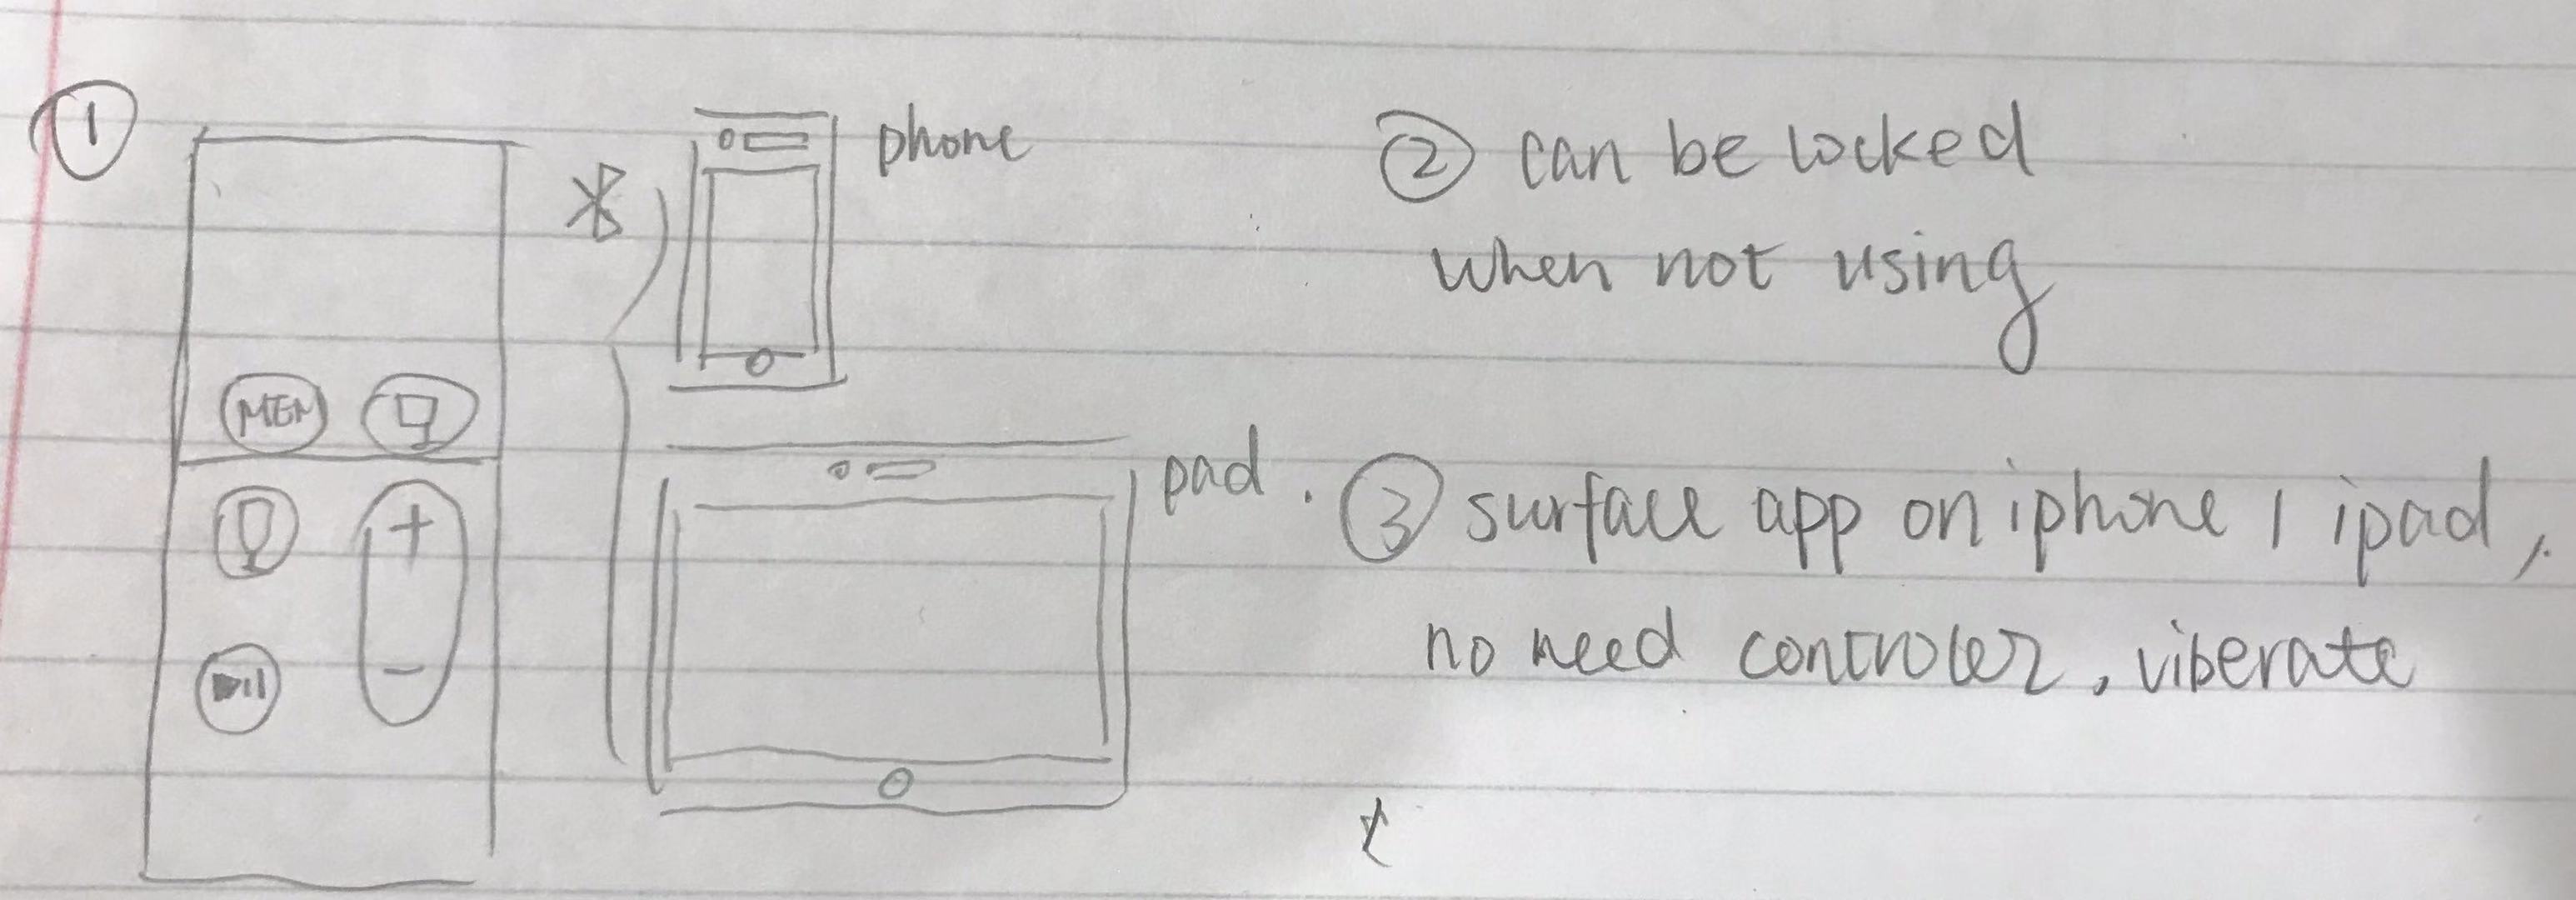 ①
MEN
+
-
phone
pad.
② can be locked
when not using
③ surface app on iphone / ipad,
no need controler, viberate
t